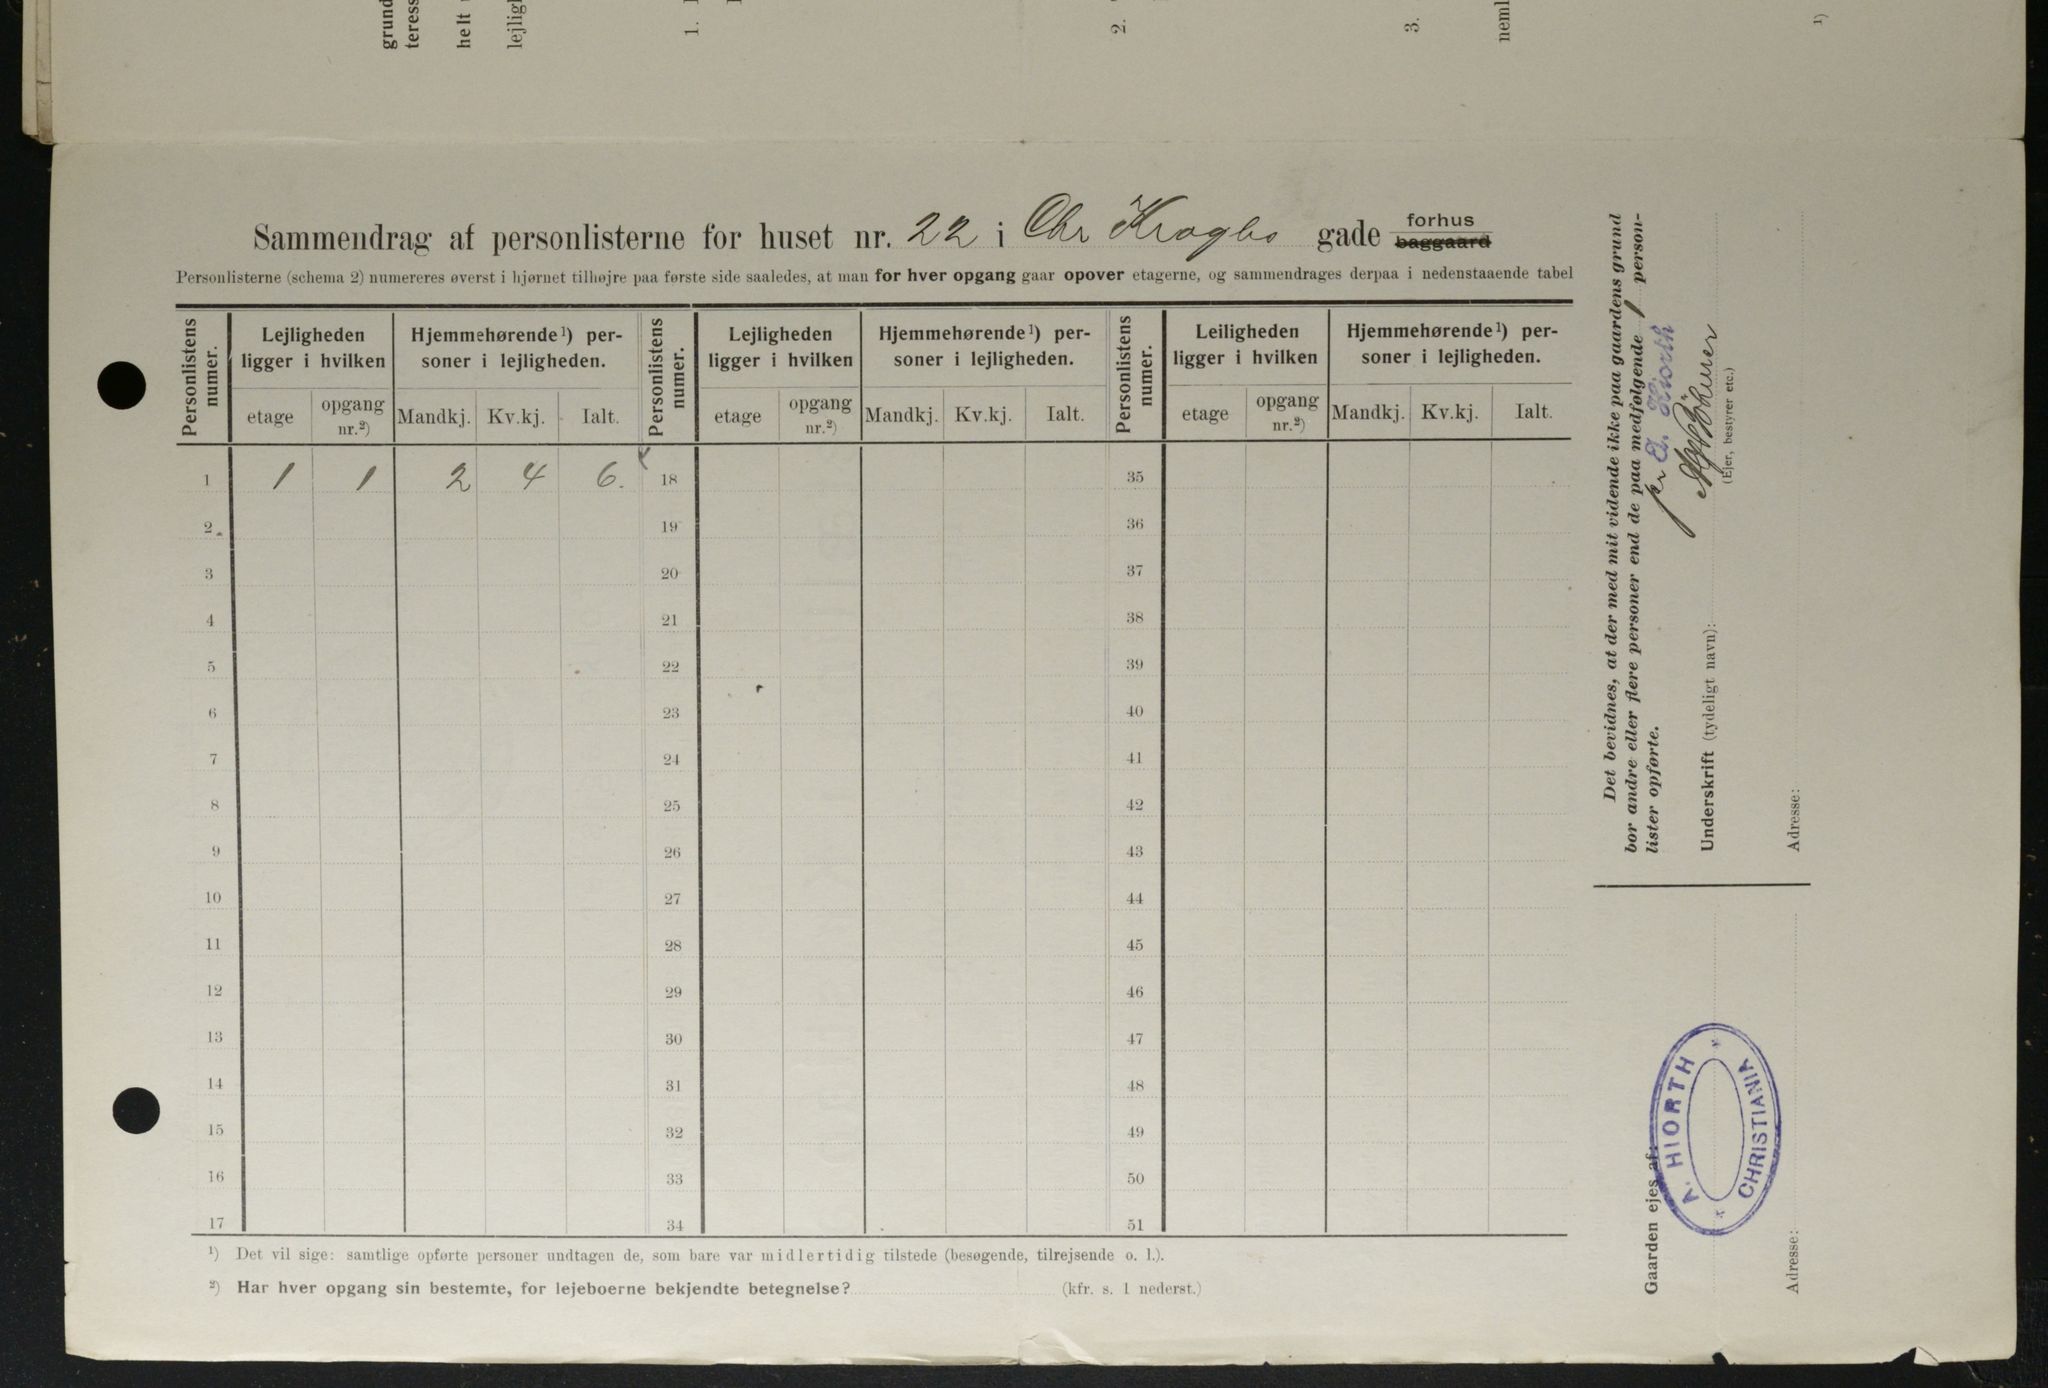 grund
teress
helt
lejligh
1.
2.
3.
neml
1)
Sammendrag af personlisterne for huset nr. 22 i Chr Kroghs gade forhus
baggaard
Personlisterne (schema 2) numereres øverst i hjørnet tilhøjre paa første side saaledes, at man for hver opgang gaar opover etagerne, og sammendrages derpaa i nedenstaaende tabel
Personlistens numer. Lejligheden ligger i hvilken Hjemmehørende¹) personer i lejligheden. Personlistens numer. Lejligheden ligger i hvilken Hjemmehørende¹) personer i lejligheden. Personlistens numer. Leiligheden ligger i hvilken Hjemmehørende¹) personer i lejligheden.
etage opgang nr.²) Mandkj. Kv.kj. Ialt. etage opgang nr.²) Mandkj. Kv.kj. Ialt. etage opgang nr.²) Mandkj. Kv.kj. Ialt.
1 1 1 2 4 6. 18 35
2 19 36
3 20 37
4 21 38
5 22 39
6 23 40
7 24 41
8 25 42
9 26 43
10 27 44
11 28 45
12 29 46
13 30 47
14 31 48
15 32 49
16 33 50
17 34 51
¹) Det vil sige: samtlige opførte personer undtagen de, som bare var midlertidig tilstede (besøgende, tilrejsende o. l.).
²) Har hver opgang sin bestemte, for lejeboerne bekjendte betegnelse? (kfr. s. 1 nederst.)
Det bevidnes, at der med mit vidende ikke paa gaardens grund
bor andre eller flere personer end de paa medfølgende 1 person-
lister opførte.
pr A. Hiorth
Underskrift (tydeligt navn):
(Ejer, bestyrer etc.)
Adresse:
Gaarden ejes af:
A. HIORTH
* CHRISTIANIA *
Adresse: